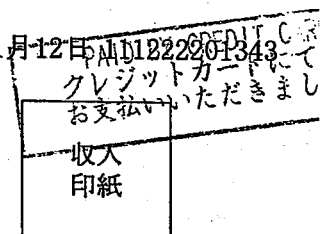 月12日 111222201343
PAID CREDIT C
クレジットカードにて
お支払いいただきまし
収入
印紙